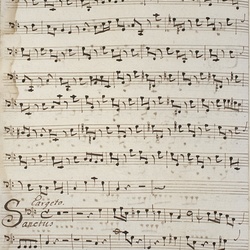 Largeto.
Sanctus